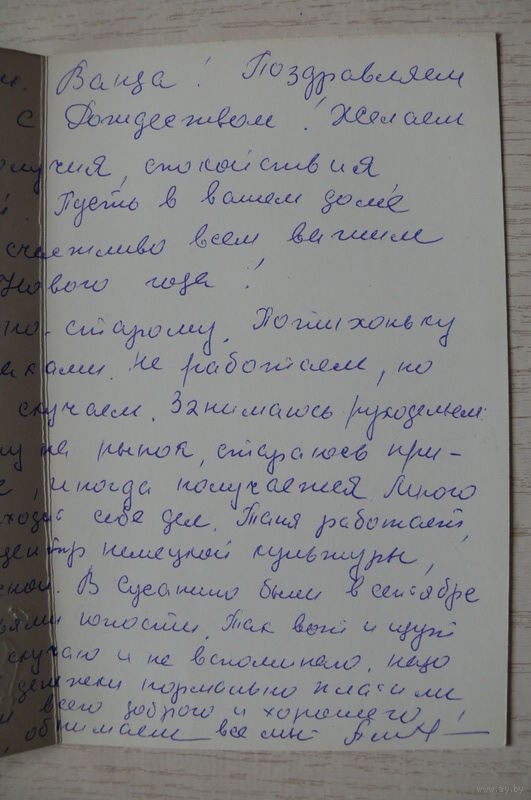 и. Ванда! Поздравляем
с Рождеством! Желаем
олучия, спокойствия
й. Пусть в вашем доме
счастливо всем вашим
Нового года!
по-старому. Потихоньку
ками. Не работаем, но
скучаем. Занимаюсь рукодельем
у на рынок, стараюсь при-
, иногда получается. Много
ходит себе дел. Таня работает,
центр немецкой культуры,
ской. В Сусанино были в сентябре
зьями юности. Так вот и идут
скучаю и не вспоминаю. надо
денежки нормально платили
и всего доброго и хорошего!
, обнимаем все мы
www.ay.by